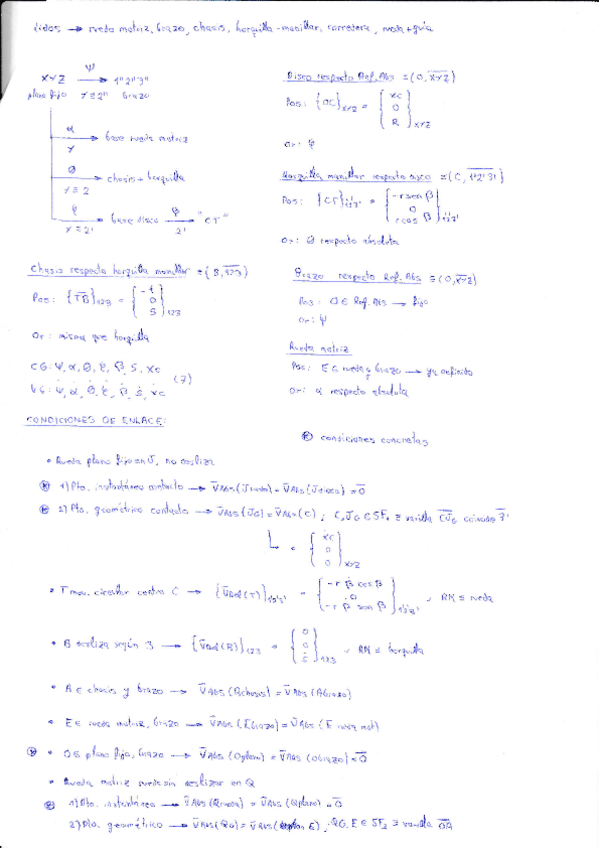 rueda motriz, brazo, chasis, horquilla-manillar, corredera, rueda+guía
XYZ —Ψ→ 1"2"3"
plano fijo Y≡2" brazo
α → base rueda motriz
Y
θ → chasis + horquilla
Y≡2
→ base disco
"CT"
Disco respecto Ref. Abs ≡ (O, XYZ)
Pos: {OC}XYZ = { xc 0 R }XYZ
Or:
Horquilla manillar respecto disco ≡ (C, 1'2'3')
Pos: {CT}1'2'3' = { -r sen β 0 r cos β }1'2'3'
Or: θ respecto absoluta
Chasis respecto horquilla manillar ≡ (B, 123)
Pos: {TB}123 = { -t 0 S }123
Or: misma que horquilla
Brazo respecto Ref. Abs ≡ (O, XYZ)
Pos: O ∈ Ref. Abs → fijo
Or: Ψ
Rueda motriz
Pos: E ∈ rueda y brazo → ya definido
Or: α respecto absoluta
CG: Ψ, α, θ, ξ, β, S, xc
VG: Ψ̇, α̇, θ̇, ξ̇, β̇, ṡ, ẋc
(7)
CONDICIONES DE ENLACE:
condiciones concretas
• Rueda plano fijo en J, no desliza
1) Pto. instantáneo contacto → V̄Abs(Jrueda) = V̄Abs(Jdisco) = 0̄
2) Pto. geométrico contacto → V̄Abs(JG) = V̄Abs(C) ; C, JG ∈ SF₁ ≡ varilla CJG
= { ẋc 0 0 }XYZ
• T mov. circular centro C → {V̄Rel(T)}1'2'3' = { -r β̇ cos β 0 -r β̇ sen β }1'2'3' , RM ≡ rueda
• B desliza según 3 → {V̄Rel(B)}123 = { 0 0 ṡ }123 , RM ≡ horquilla
• A ∈ chasis y brazo → V̄Abs(Achasis) = V̄Abs(Abrazo)
• E ∈ rueda motriz, brazo → V̄Abs(Ebrazo) = V̄Abs(E rueda mot)
• O ∈ plano fijo, brazo → V̄Abs(Oplano) = V̄Abs(Obrazo) = 0̄
• Rueda motriz rueda sin deslizar en Q
1) Pto. instantáneo → V̄Abs(Qrueda) = V̄Abs(Qplano) = 0̄
2) Pto. geométrico → V̄Abs(QG) = V̄Abs(E), QG, E ∈ SF₂ ≡ varilla